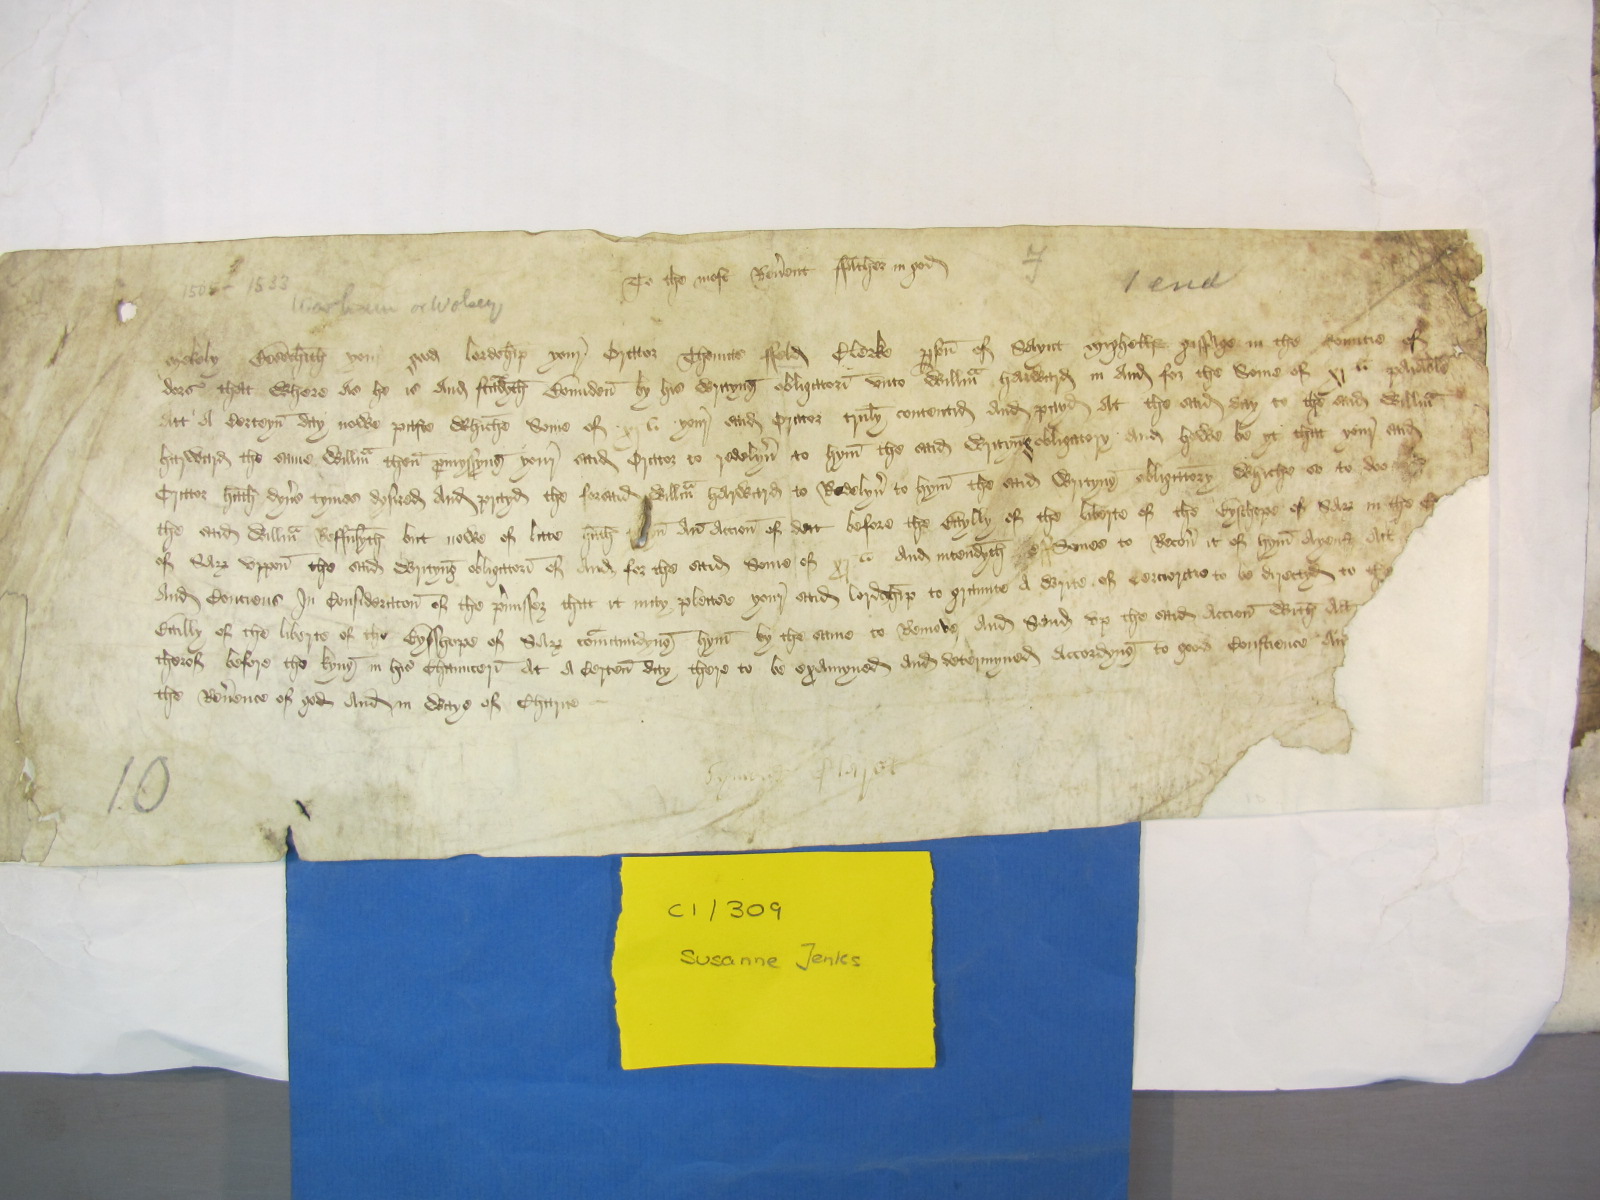 To the most Reuerent ffather in god
7
1 end
150 - 1533
Warham or Wolsey
Mekely besechith your good lordship your Orator Thomas ffeld Clerke pson of Saynt in the countie of
dors that where as he is and standyth bounden by his wrytyng obligatorie vnto Willm harward in and for the Some of xj li paiable
att a certeyn day nowe paste whiche Some of xj li your said Orator truly contentid and payd at the said day to the said Willm
harward the same Willm then promysyng your said Orator to redelyuer to hym the said wrytyng obligatory and howe be yt that your said
Orator hath dyuers tymes dysired and prayd the forsaid Willm harward to Redelyuer to hym the said wrytyng obligatory whiche so to doo
the said Willm Reffusyth but nowe of late hath an accion of dett before the Baylly of the liberte of the Bysshope of Sarz in the
of Sarz vppon the said wrytyng obligatorie of and for the said Some of xj li and intendyth to Recouer it of hym ayenst all
and Conciens In Consideracion of the premissez that it may please your said lordship to graunte a write of Cerciorare to be directyd to the
Bailly of the liberte of the Bysshope of Sarz commaundyng hym by the same to Remove and Send vp the said accion with all
therof before the kyng in his Chauncery at a Certen day there to be examyned and determyned accordyng to good Conscience And
the Reuerence of god and in waye of Charite
10
C1/309
Susanne Jenks